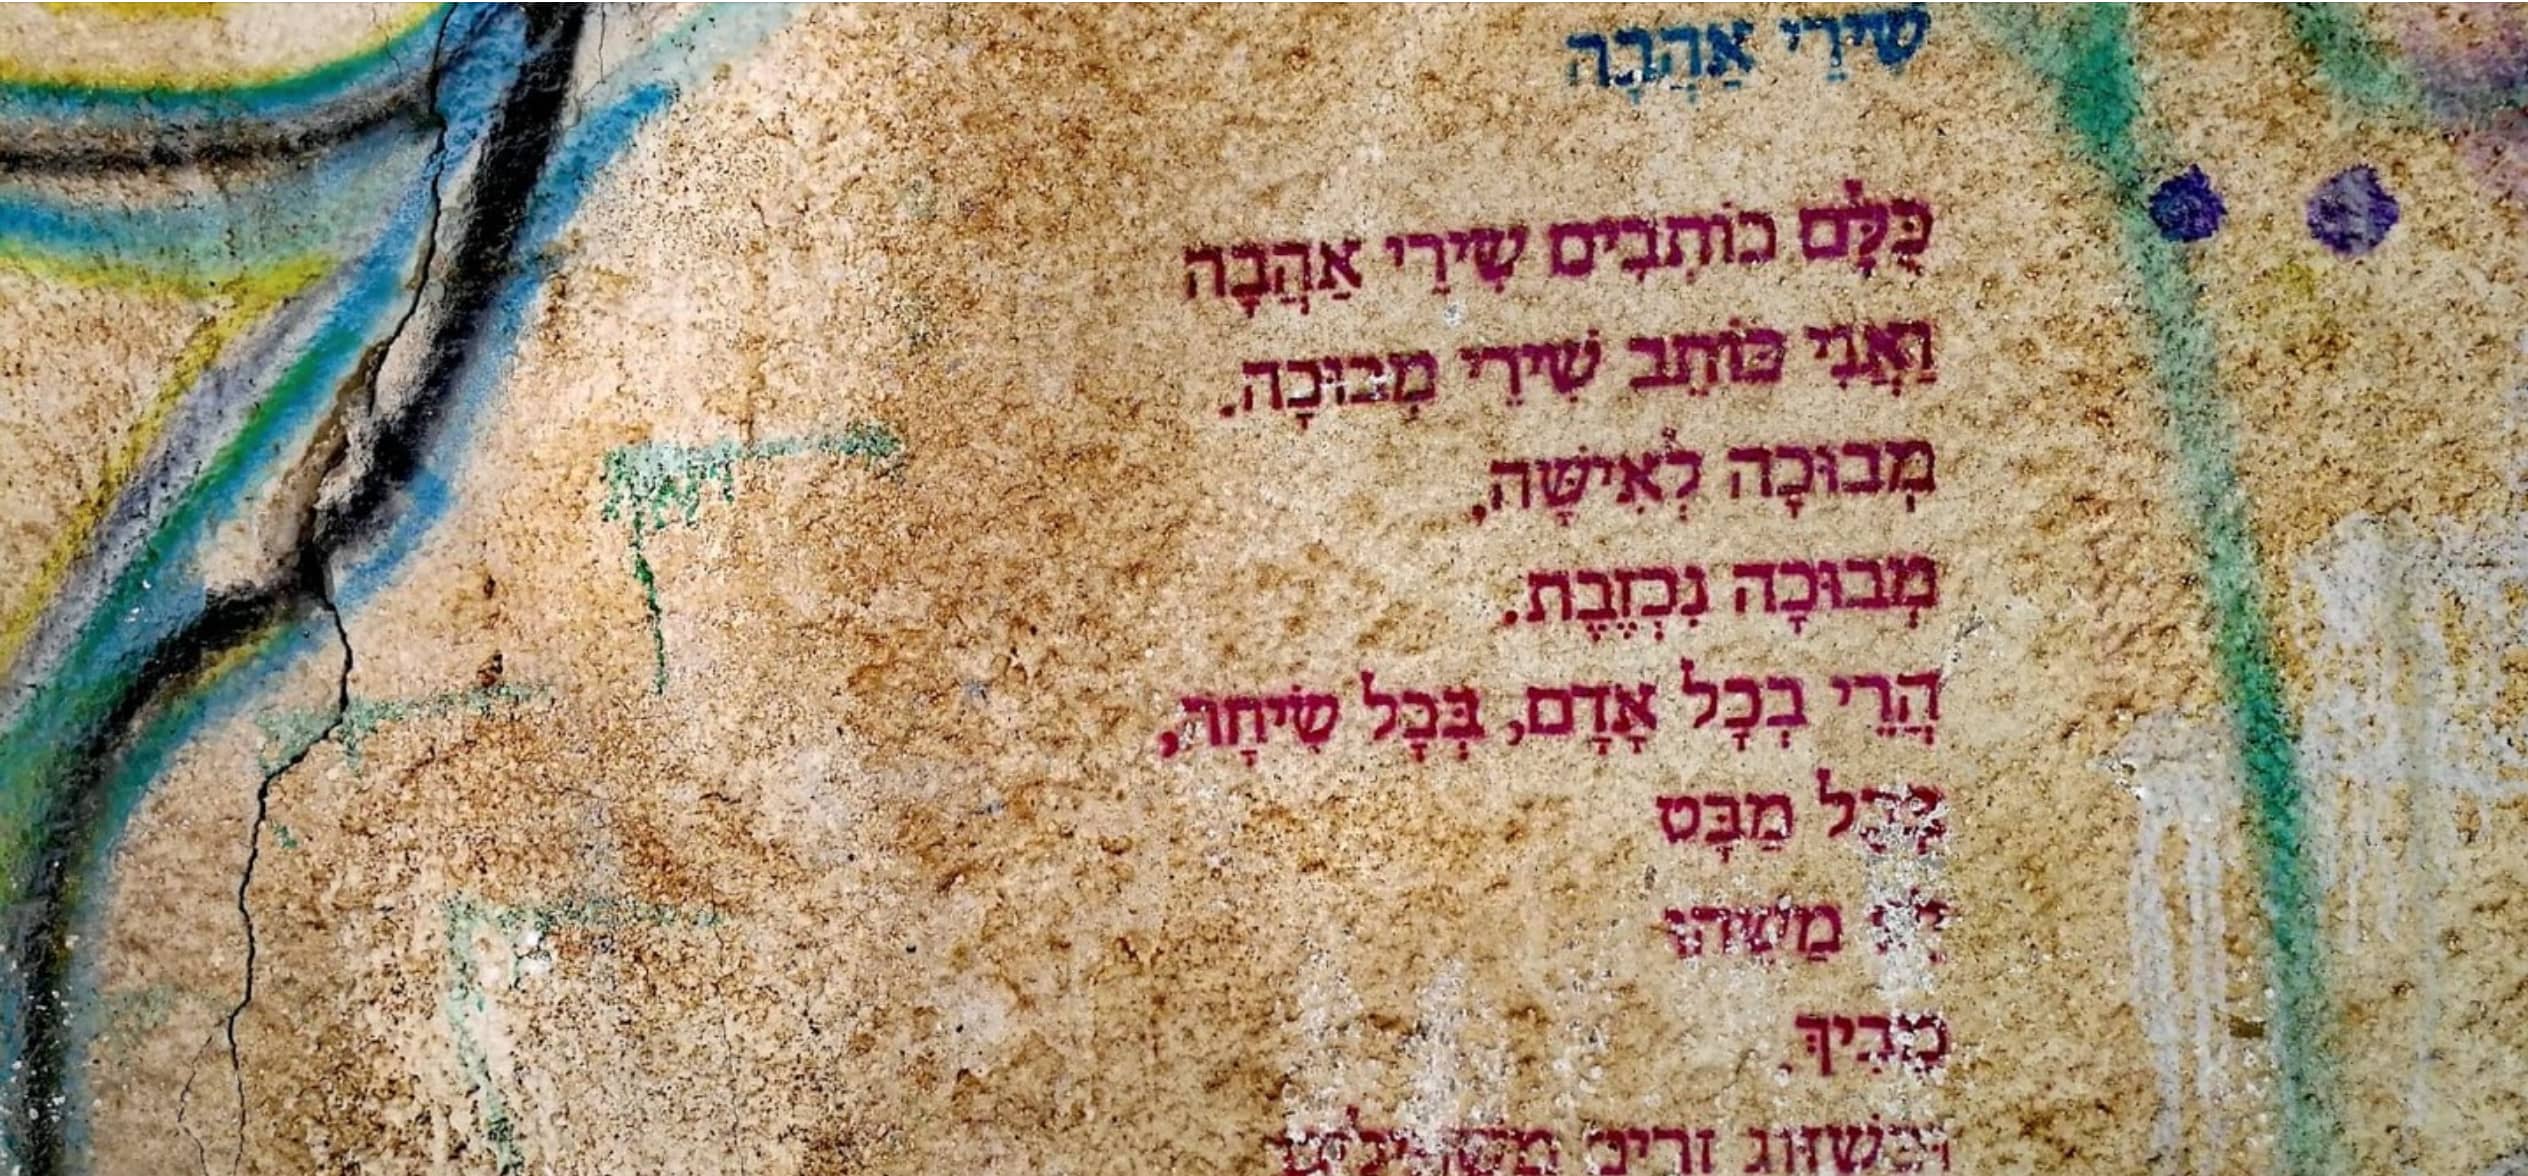 שִׁירֵי אַהֲבָה
כֻּלָּם כּוֹתְבִים שִׁירֵי אַהֲבָה
וַאֲנִי כּוֹתֵב שִׁירֵי מְבוּכָה.
מְבוּכָה לְאִישָּׁה,
מְבוּכָה נִכְזֶבֶת.
הֲרֵי בְּכָל אָדָם, בְּכָל שִׂיחָה,
בְּכָל מַבָּט
יֵשׁ מַשֶּׁהוּ
מֵבִיךְ.
וּכְשֶׁזּוּג זָרִים